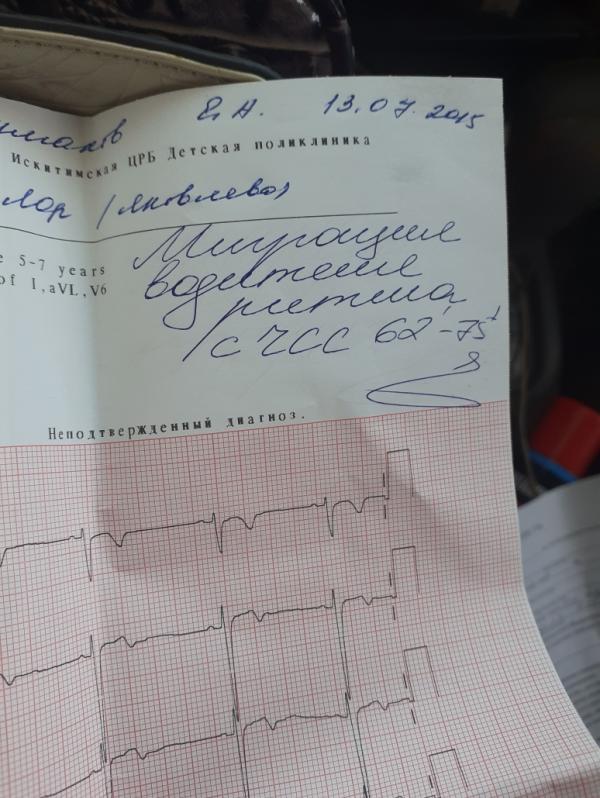 Е. А. 13.07.2015
Искитимская ЦРБ Детская поликлиника
Лор / Яковлева
e 5-7 years
of I,aVL,V6
Миграция
водителя
ритма
с ЧСС 62'-75'
Неподтвержденный диагноз.